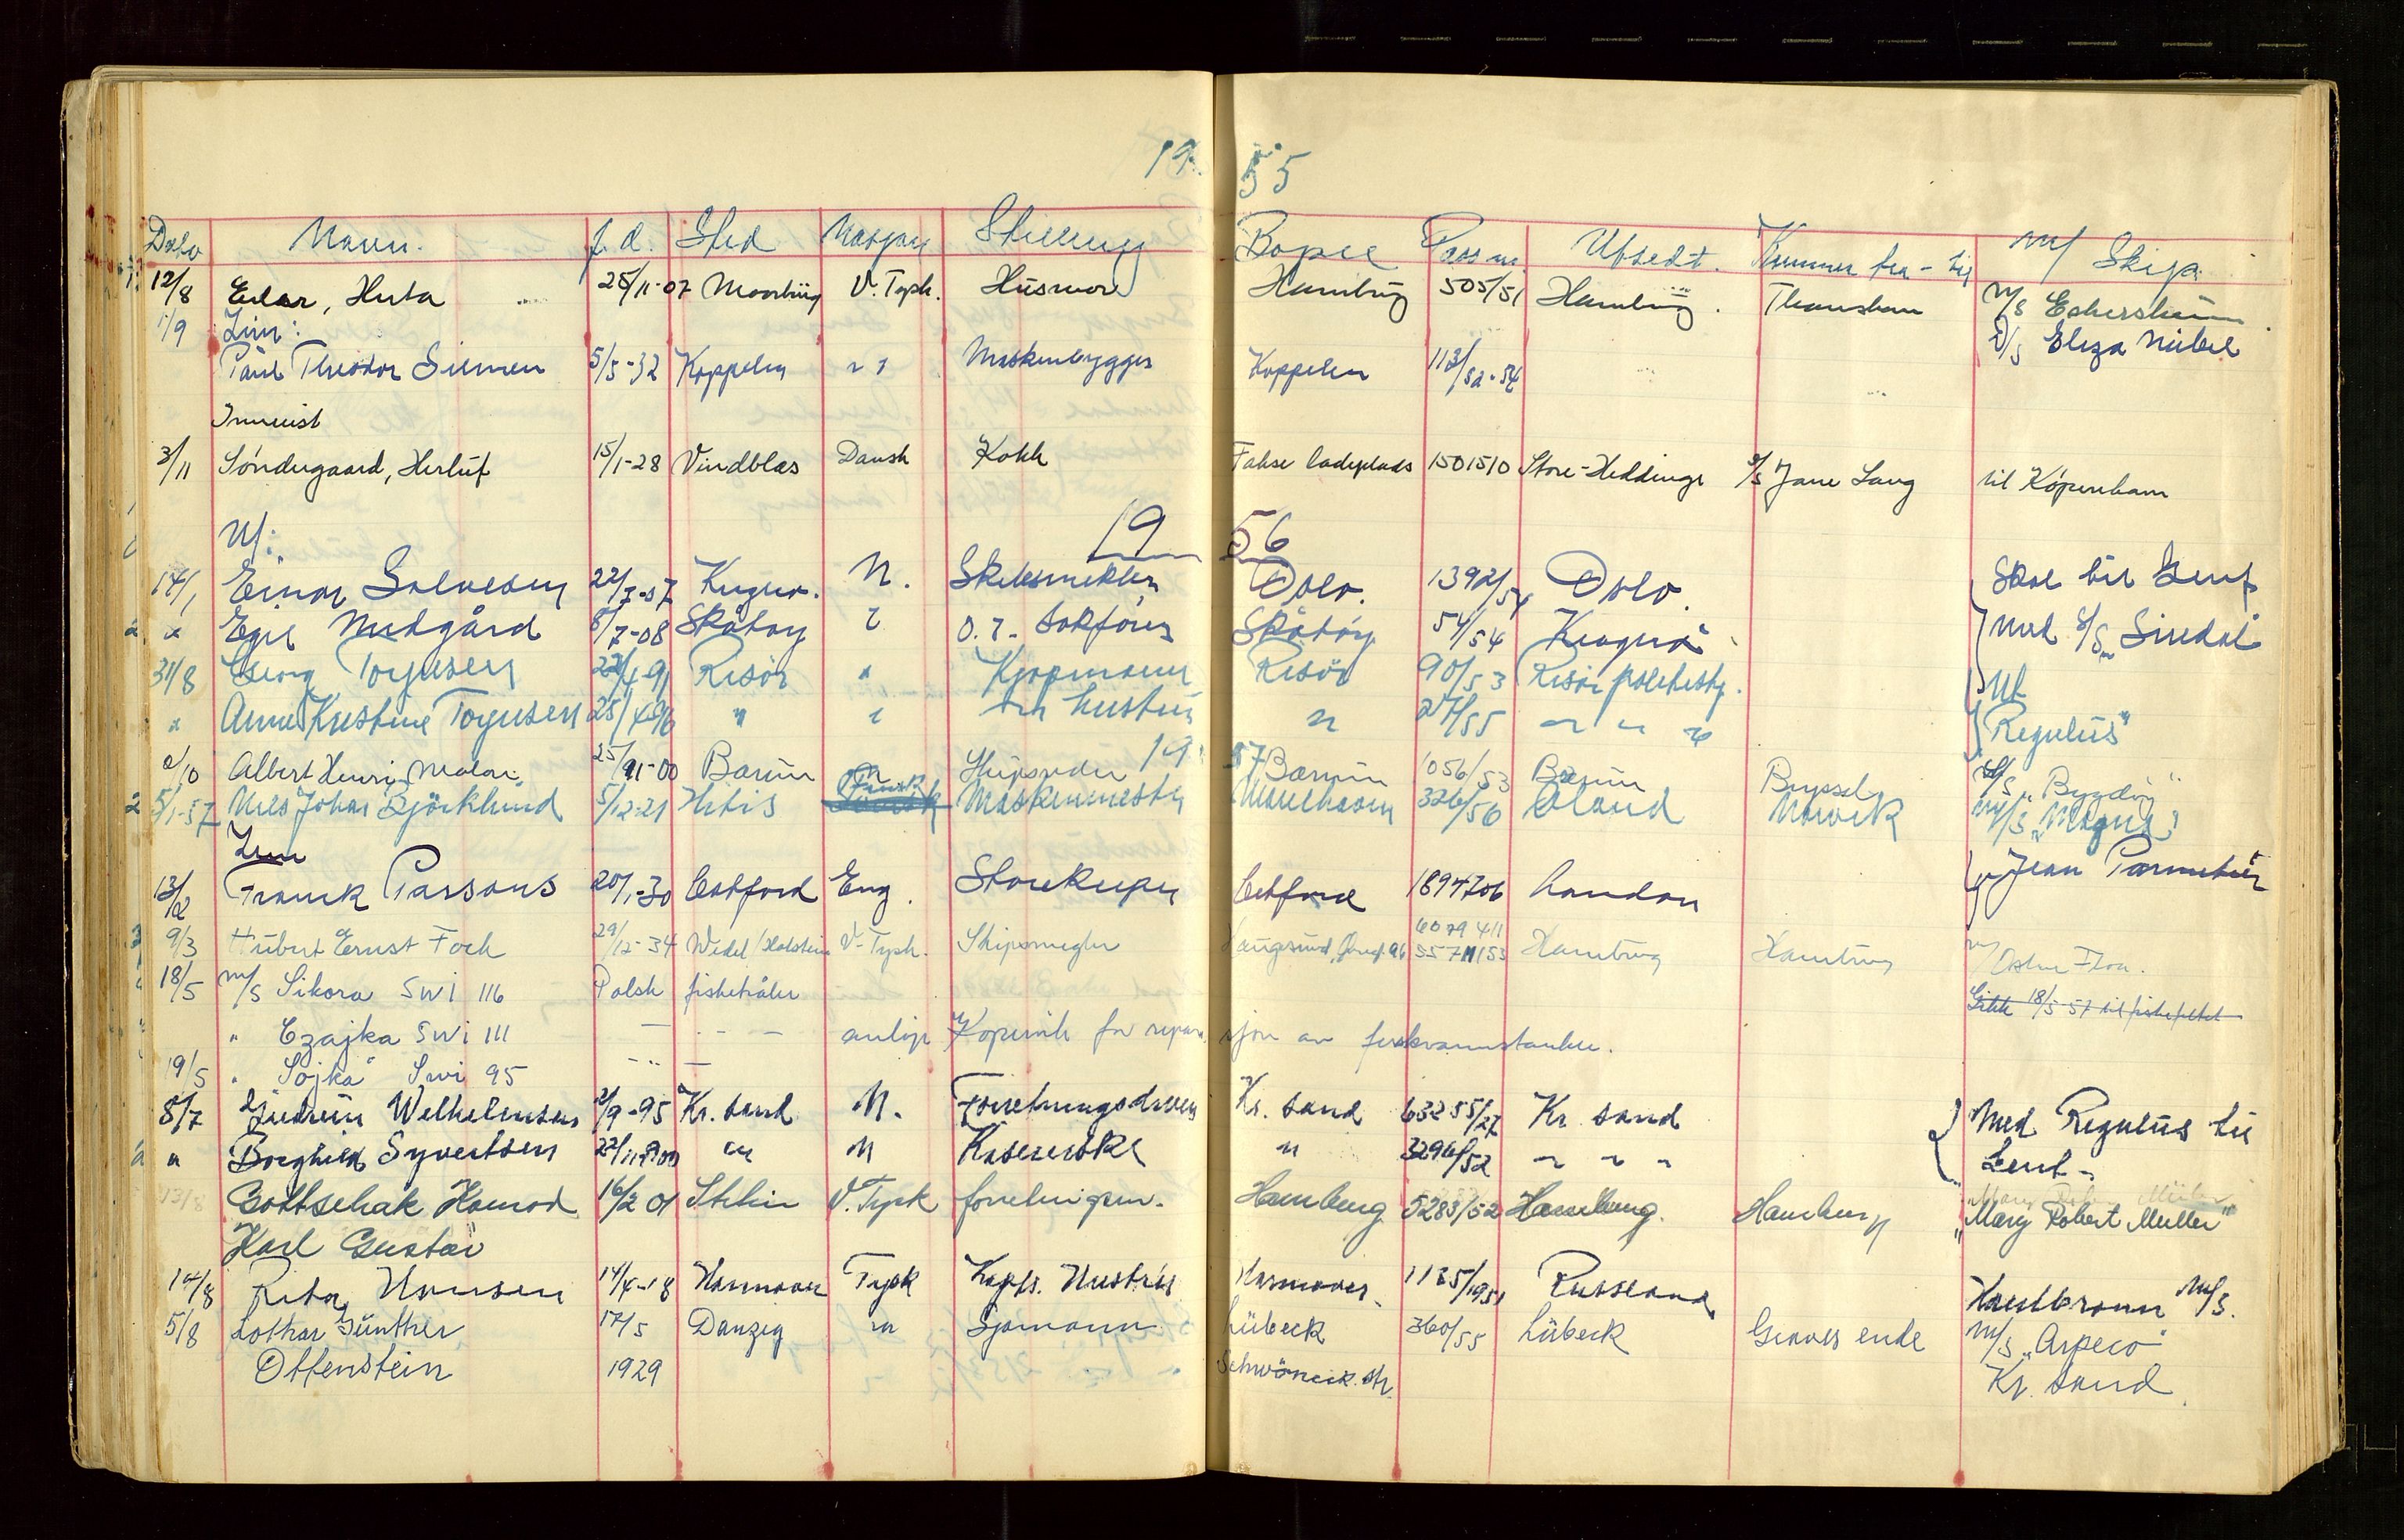 19 55
Dato Navn. f. d. Sted Nasjon Stilling Bopel Pass nr. Utstedt. Kommer fra - til m/ Skip.
12/8 Euler, Herta 25/11-07 Moorburg V. Tysk. Husmor Hamburg 505/51 Hamburg. m/s Eckersheim
1/9 Inn: D/s Eliza Nübel
Paul Theodor Siemen 5/5-32 Kappeln Maskinbygger Kappeln 113/52-54
Innreist
3/11 Söndergaard, Herluf 15/1-28 Vindblæs Dansk Kokk Fakse ladeplads 1501510 Store-Heddinge s/s Jane Lang til Köpenham
19 56
Ut:
14/1 Einar Salvesen 22/7-07 Kragerø. N. Skibsmekler Oslo. 1392/54 Oslo. Skal til Gent
" Egil Midgård 8/7-08 Skåtøy O.r. sakfører Skåtøy 54/54 Kragerø med s/s "Siredal"
31/8 Georg Torjusen 22/4-91 Risör " Kjøpmann Risör 90/53 Risör politistj. Ut
" Anne Kristine Torjusen 25/4-96 " " hustru " 27/55 " " " "Regulus"
19 57
2/10 Albert Henri 25/11-00 Bærum Skipsreder Bærum 1056/53 Bærum Bryssel M/S "Bygdöy"
5/1-57 Nils Johan Björklund 5/12-21 Hitis Finsk Maskinmester Mariehamn 326/56 Åland Narvik m/s "Magnus"
Inn
13/2 Franck Parsons 20/1-30 Catford Eng. Storekeeper Catford 1894706 London "Jean Parmentier"
9/3 Hubert Ernst Fock 29/12-34 Wedel/Holstein V-Tysk. Skipsmegler Haugesund, 96 6079411 5571/153 Hamburg Hamburg m/ Oskar Floa.
18/5 m/s Sikora SWI 116 Polsk fisketråler Gikk 18/5-57 til fiskefeltet
" Czajka SWI 111 — " — anløp Kopervik for reparasjon av ferskvannstanken.
19/5 " "Sojka" Swi 95 — " —
8/7 Gudrun Wilhelmsen 2/9-95 Kr. sand N. Forretningsdriven Kr. sand 63255/27 Kr. sand Med Regulus til
" Borghild Syvertsen 22/11-1900 " N Kasererske " 3296/52 " " " Gent -
13/8 Gottschak Konrad 16/2 01 Stettin V. Tysk forretningsm. Hamburg 5283/52 Hamburg. Hamburg "Mary Robert Müller"
Karl Gustav
14/8 Rita Hansen 14/4-18 Hannover Tysk Kapts. Hustru Hannover 1135/1951 Heilbronn m/s.
5/8 Lothar Günther 17/5 Danzig " Sjømann Lübeck 360/55 Lübeck Graves ende m/s "Arpeco"
Ottenstein 1929 Schwöneck. str. Kr. sand.